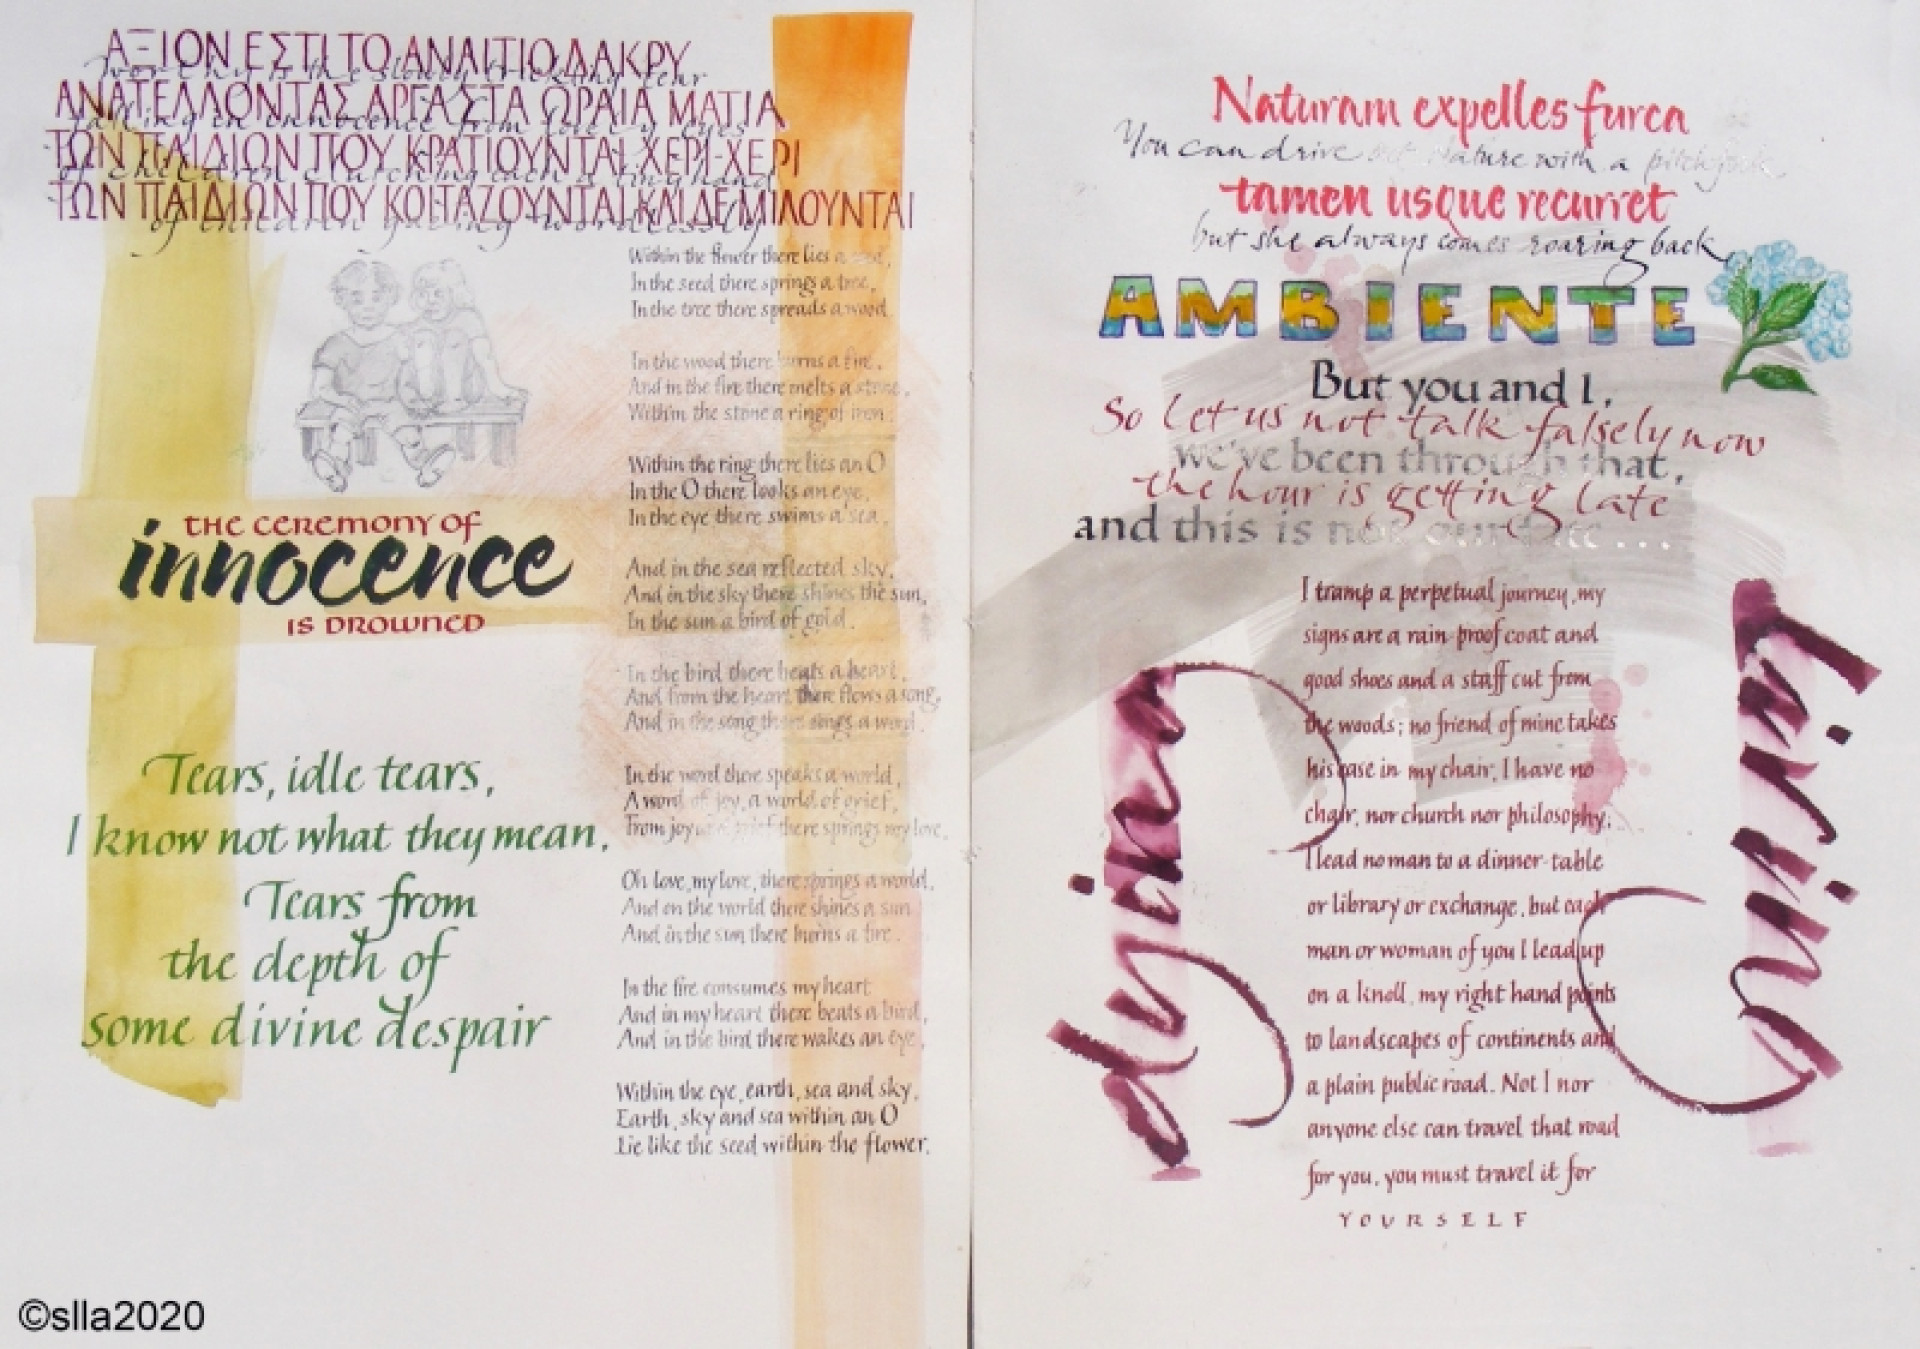 ΑΞΙΟΝ ΕΣΤΙ ΤΟ ΑΝΑΙΤΙΟ ΔΑΚΡΥ
Worthy is the slowly trickling tear
ΑΝΑΤΕΛΛΟΝΤΑΣ ΑΡΓΑ ΣΤΑ ΩΡΑΙΑ ΜΑΤΙΑ
falling in innocence from lovely eyes
ΤΩΝ ΠΑΙΔΙΩΝ ΠΟΥ ΚΡΑΤΙΟΥΝΤΑΙ ΧΕΡΙ-ΧΕΡΙ
of children clutching each a tiny hand
ΤΩΝ ΠΑΙΔΙΩΝ ΠΟΥ ΚΟΙΤΑΖΟΥΝΤΑΙ ΚΑΙ ΔΕ ΜΙΛΟΥΝΤΑΙ
of children gazing wordlessly
THE CEREMONY OF
innocence
IS DROWNED
Tears, idle tears,
I know not what they mean.
Tears from
the depth of
some divine despair
Within the flower there lies a seed,
In the seed there springs a tree,
In the tree there spreads a wood.
In the wood there burns a fire,
And in the fire there melts a stone,
Within the stone a ring of iron.
Within the ring there lies an O
In the O there looks an eye,
In the eye there swims a sea,
And in the sea reflected sky,
And in the sky there shines the sun,
In the sun a bird of gold.
In the bird there beats a heart,
And from the heart there flows a song,
And in the song there sings a word.
In the word there speaks a world,
A word of joy, a world of grief,
From joy and grief there springs my love.
Oh love, my love, there springs a world,
And on the world there shines a sun
And in the sun there burns a fire.
In the fire consumes my heart
And in my heart there beats a bird,
And in the bird there wakes an eye,
Within the eye, earth, sea and sky,
Earth, sky and sea within an O
Lie like the seed within the flower.
©slla2020
Naturam expelles furca
You can drive out Nature with a pitchfork
tamen usque recurret
but she always comes roaring back
AMBIENTE
But you and I,
So let us not talk falsely now
we've been through that,
the hour is getting late
and this is not our fate ...
dying
I tramp a perpetual journey, my
signs are a rain-proof coat and
good shoes and a staff cut from
the woods; no friend of mine takes
his ease in my chair, I have no
chair, nor church nor philosophy;
I lead no man to a dinner-table
or library or exchange, but each
man or woman of you I lead up
on a knoll, my right hand points
to landscapes of continents and
a plain public road. Not I nor
anyone else can travel that road
for you, you must travel it for
YOURSELF